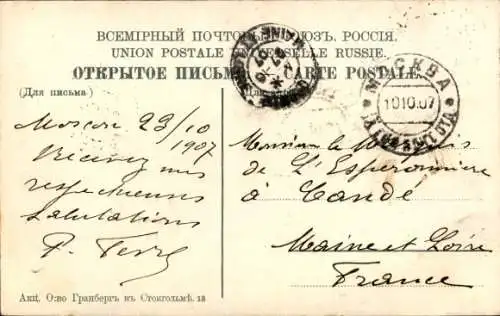 ВСЕМІРНЫЙ ПОЧТОВЫЙ СОЮЗЪ. РОССІЯ.
UNION POSTALE UNIVERSELLE RUSSIE.
ОТКРЫТОЕ ПИСЬМО CARTE POSTALE.
(Для письма)
МОСКВА
10 10. 07
Moscou 23/10
1907
Recevez mes
respectueuses
salutations
P. Ferré
Monsieur le Marquis
de L'Esperonnière
à Candé
Maine et Loire
France
Акц. О-во Гранбергъ въ Стокгольмѣ. 18